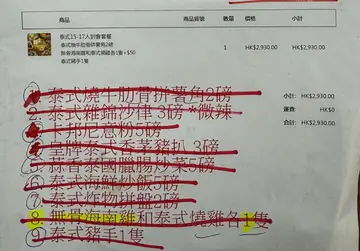 商品 商品貨號 數量 價格 小計
泰式15-17人到會套餐
泰式燒牛肋骨拼薯角2磅
無骨海南雞和泰式燒雞各1隻 + $50
泰式豬手1隻
1 HK$2,930.00 HK$2,930.00
小計: HK$2,930.00
運費: HK$0
合計: HK$2,930.00
1. 泰式燒牛肋骨拼薯角2磅
2. 泰式雜錦沙律 3磅 *微辣
3. 卡邦尼意粉5磅
4. 皇牌泰式香茅豬扒 3磅
5. 蒜香泰國臘腸炒菜5磅
6. 泰式海鮮炒飯5磅
7. 泰式炸物拼盤2磅
8. 無骨海南雞和泰式燒雞各1隻
9. 泰式豬手1隻